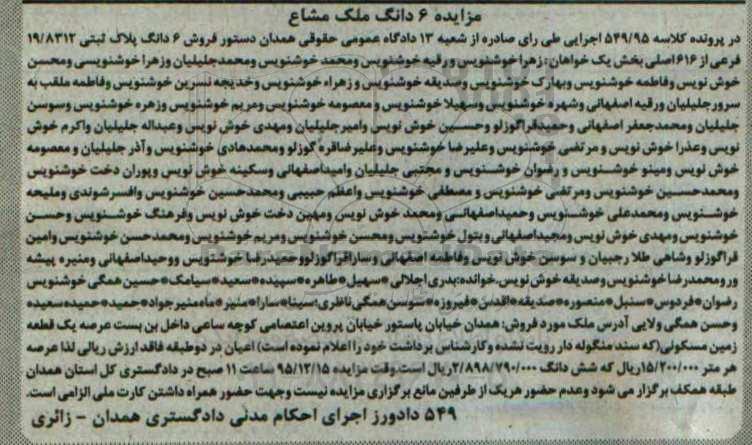 مزایده ۶ دانگ ملک مشاع
در پرونده کلاسه ۵۴۹/۹۵ اجرایی طی رای صادره از شعبه ۱۳ دادگاه عمومی حقوقی همدان دستور فروش ۶ دانگ پلاک ثبتی ۱۹/۸۳۱۲
فرعی از ۶۱۶ اصلی بخش یک خواهان: زهرا خوشنویس و رقیه خوشنویس ومحمد خوشنویس ومحمدجلیلیان وزهرا خوشنویسی ومحسن
خوش نویس وفاطمه خوشنویس وبهارک خوشنویس وصدیقه خوشنویس و زهراء خوشنویس وخدیجه نسرین خوشنویس وفاطمه ملقب به
سرور جلیلیان ورقیه اصفهانی وشهره خوشنویس وسهیلا خوشنویس و معصومه خوشنویس ومریم خوشنویس وزهره خوشنویس وسوسن
جلیلیان ومحمدجعفر اصفهانی وحمید قراگوزلو وحسین خوش نویس وامیر جلیلیان ومهدی خوش نویس وعبداله جلیلیان واکرم خوش
نویس وعذرا خوش نویس و مرتضی خوشنویس وعلیرضا خوشنویس وعلیرضاقره گوزلو ومحمدهادی خوشنویس وآذر جلیلیان و معصومه
خوش نویس ومینو خوشنویس و رضوان خوشنویس و مجتبی جلیلیان وامیداصفهانی وسکینه خوش نویس وپوران دخت خوشنویس
ومحمدحسین خوشنویس ومرتضی خوشنویس و مصطفی خوشنویس واعظم حبیبی ومحمدحسین خوشنویس وافسرشوندی وملیحه
خوشنویس ومحمدعلی خوشنویس وحمیداصفهانی ومحمد خوش نویس ومهین دخت خوش نویس وفرهنگ خوشنویس وحسن
خوشنویس ومهدی خوش نویس ومجیداصفهانی وبتول خوشنویس ومحسن خوشنویس ومریم خوشنویس ومحمدحسن خوشنویس وامین
قراگوزلو وشاهی طلا رجبیان و سوسن خوش نویس وفاطمه اصفهانی وساراقراگوزلو وحمیدرضا خوشنویس ووحیداصفهانی ومنیره پیشه
ور ومحمدرضا خوشنویس وصدیقه خوش نویس.خوانده:بدری اجلالی*سهیل*طاهره*سپیده*سعید*سیامک*حسین همگی خوشنویس
رضوان*فردوس*سنبل*منصوره*صدیقه*اقدس*فیروزه*سوسن همگی ناظری؛سینا*سارا*منیر*ماه‌منیرجواد*حمید*حمیده‌سعیده
وحسن همگی ولایی آدرس ملک مورد فروش: همدان خیابان پاستور خیابان پروین اعتصامی کوچه ساعی داخل بن بست عرصه یک قطعه
زمین مسکونی(که سند منگوله دار رویت نشده وکارشناس برداشت خود را اعلام نموده است) اعیان در دوطبقه فاقد ارزش ریالی لذا عرصه
هر متر ۱۵/۲۰۰/۰۰۰ریال که شش دانگ ۲/۸۹۸/۷۹۰/۰۰۰ریال است.وقت مزایده ۹۵/۱۲/۱۵ ساعت ۱۱ صبح در دادگستری کل استان همدان
طبقه همکف برگزار می شود وعدم حضور هریک از طرفین مانع برگزاری مزایده نیست وجهت حضور همراه داشتن کارت ملی الزامی است.
۵۴۹ دادورز اجرای احکام مدنی دادگستری همدان - زائری